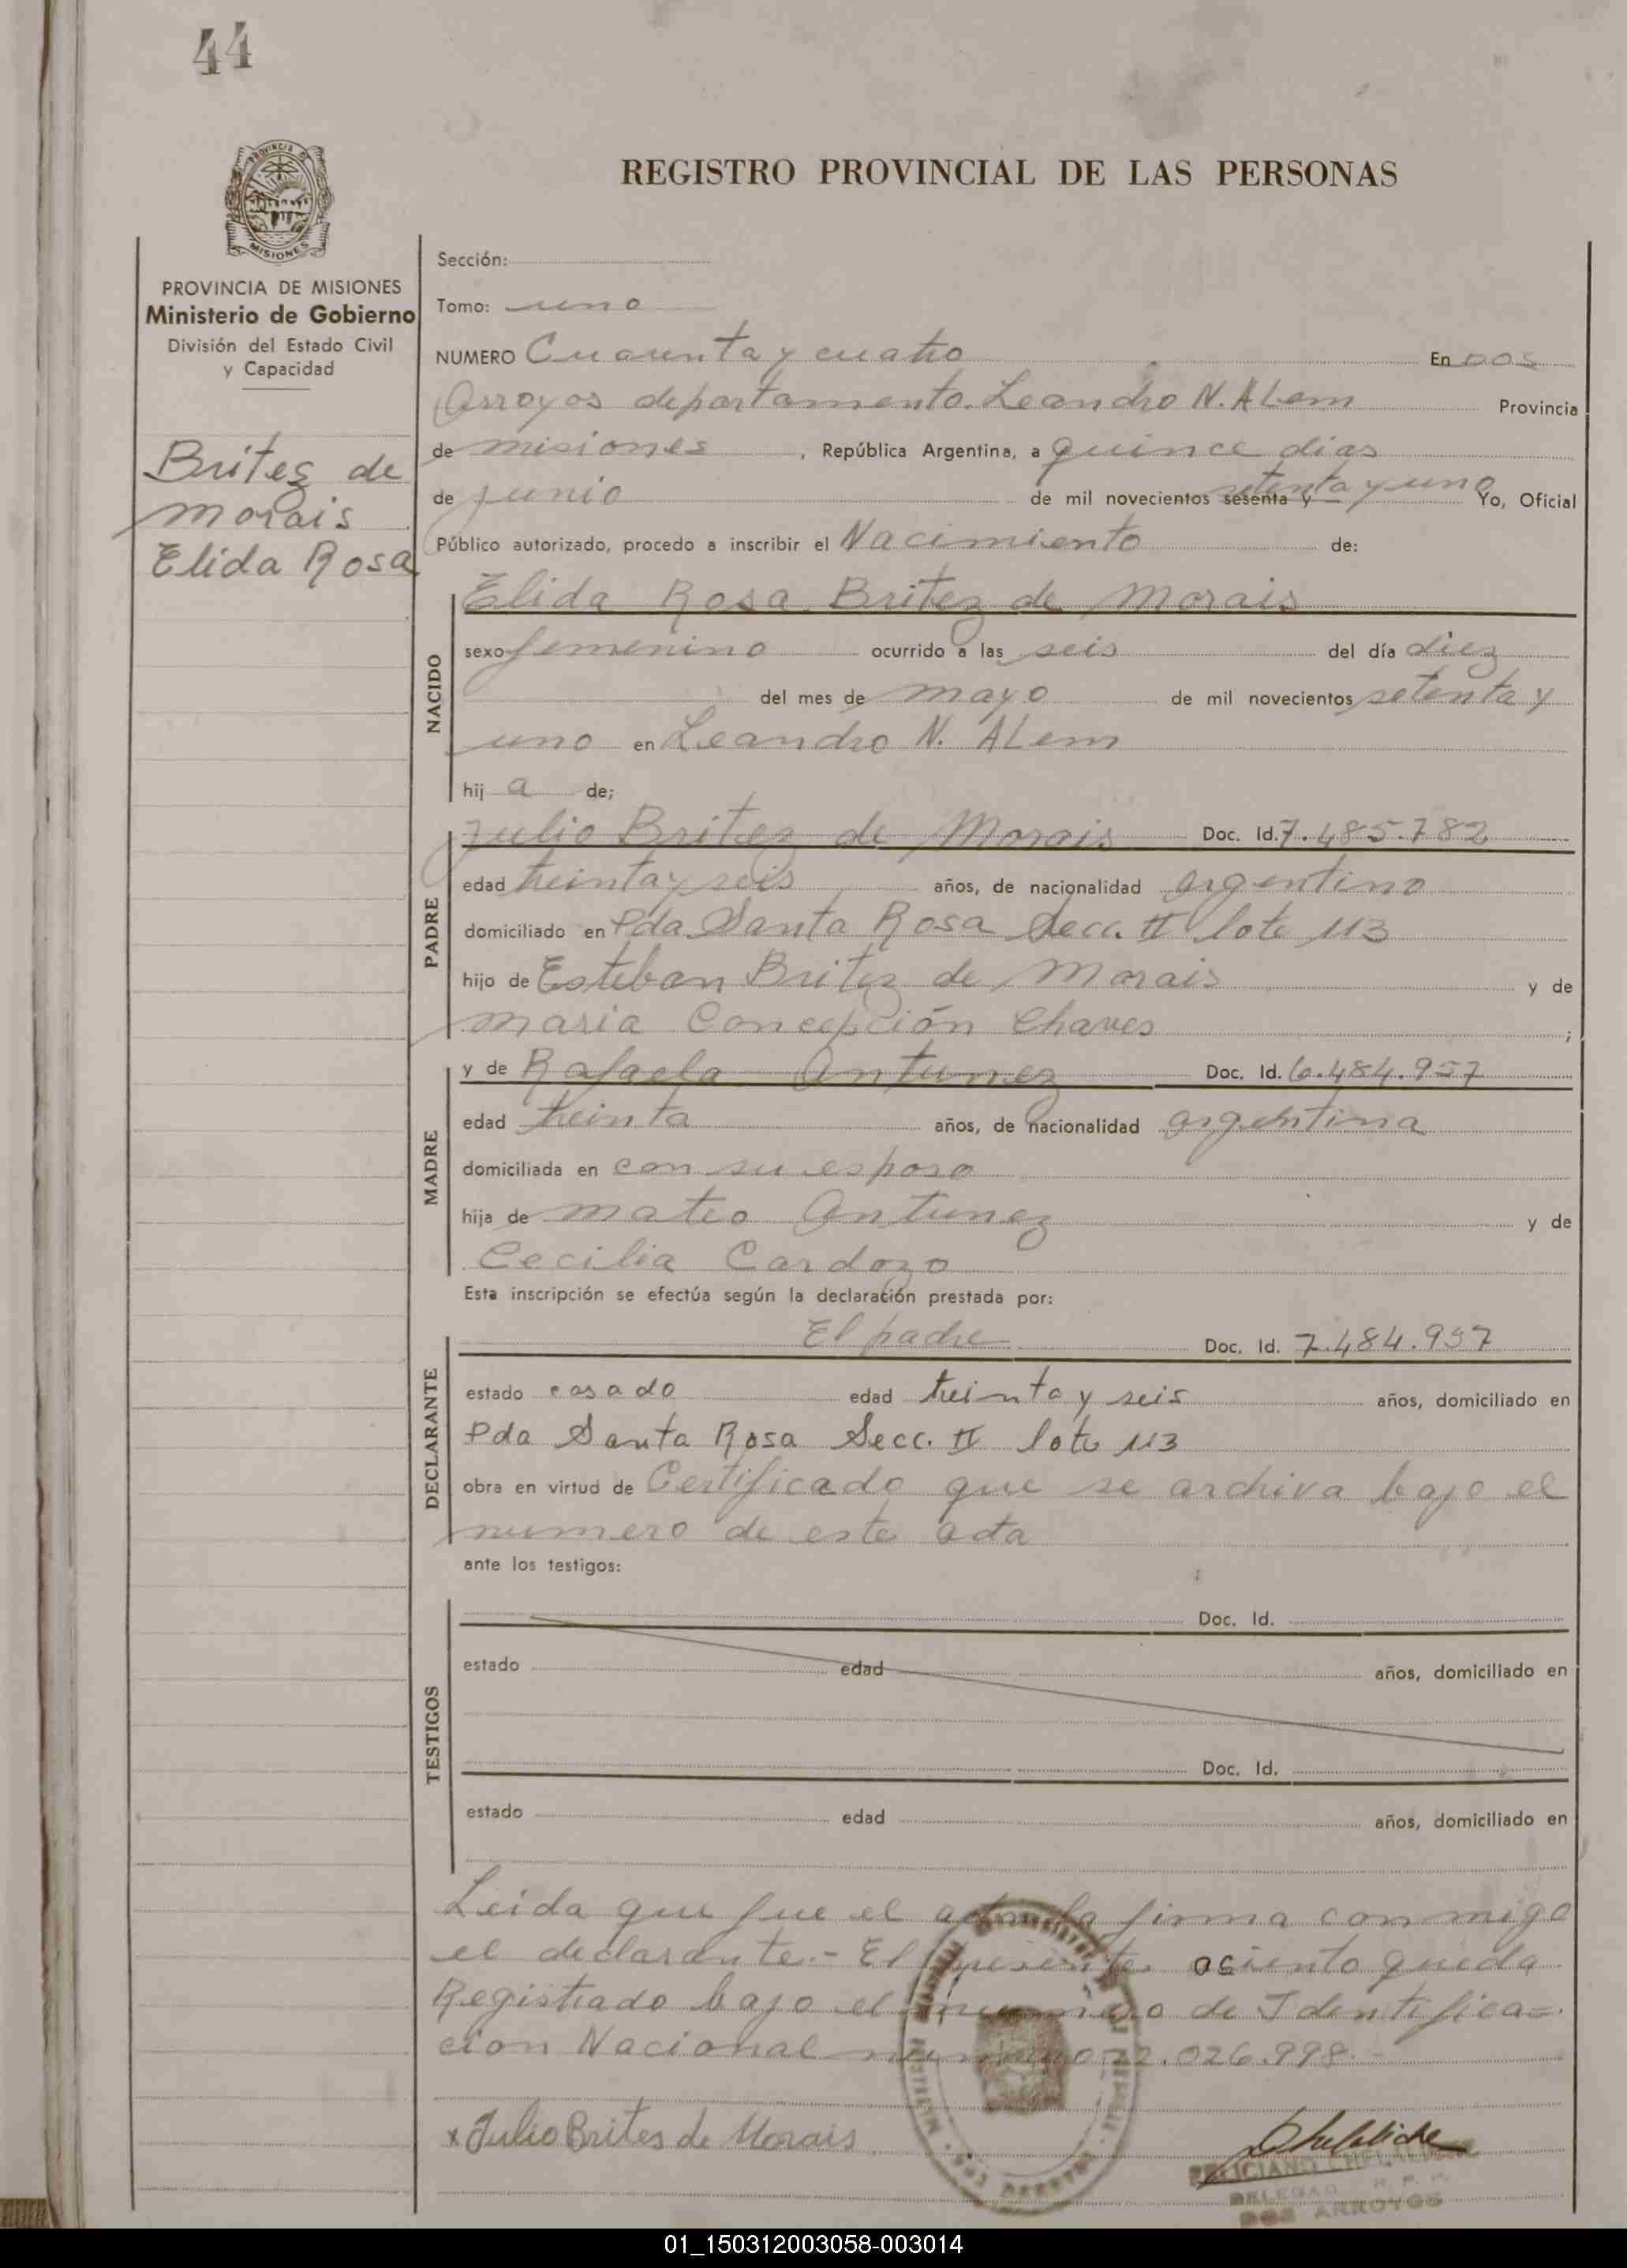 44
PROVINCIA DE
MISIONES
REGISTRO PROVINCIAL DE LAS PERSONAS
PROVINCIA DE MISIONES
Ministerio de Gobierno
División del Estado Civil
y Capacidad
Britez de
Morais
Elida Rosa
Sección:
Tomo: uno
NUMERO Cuarenta y cuatro En DOS
Arroyos departamento Leandro N. ALem Provincia
de misiones, República Argentina, a quince dias
de junio de mil novecientos sesenta y setenta y uno Yo, Oficial
Público autorizado, procedo a inscribir el Nacimiento de:
NACIDO
Elida Rosa Britez de Morais
sexo femenino ocurrido a las seis del día diez
del mes de mayo de mil novecientos setenta y
uno en Leandro N. ALem
hij a de;
PADRE
Julio Britez de Morais Doc. Id. 7.485.782
edad treinta y seis años, de nacionalidad argentino
domiciliado en Pda Santa Rosa Secc. II lote 113
hijo de Esteban Britez de Morais y de
Maria Concepción Chaves ;
MADRE
y de Rafaela Antunez Doc. Id. 6.484.957
edad treinta años, de nacionalidad argentina
domiciliada en con su esposo
hija de Mateo Antunez y de
Cecilia Cardozo
Esta inscripción se efectúa según la declaración prestada por:
DECLARANTE
El padre Doc. Id. 7.484.957
estado casado edad treinta y seis años, domiciliado en
Pda Santa Rosa Secc. II lote 113
obra en virtud de Certificado que se archiva bajo el
numero de este acta
ante los testigos:
TESTIGOS
Doc. Id.
estado edad años, domiciliado en
Doc. Id.
estado edad años, domiciliado en
Leida que fue el acta la firma conmigo
el declarante.- El presente asiento queda
Registrado bajo el numero de Identifica=
cion Nacional numero 22.026.998.-
x Julio Brites de Morais
FELICIANO
DELEGAD R. P. P.
DOS ARROYOS
01_150312003058-003014